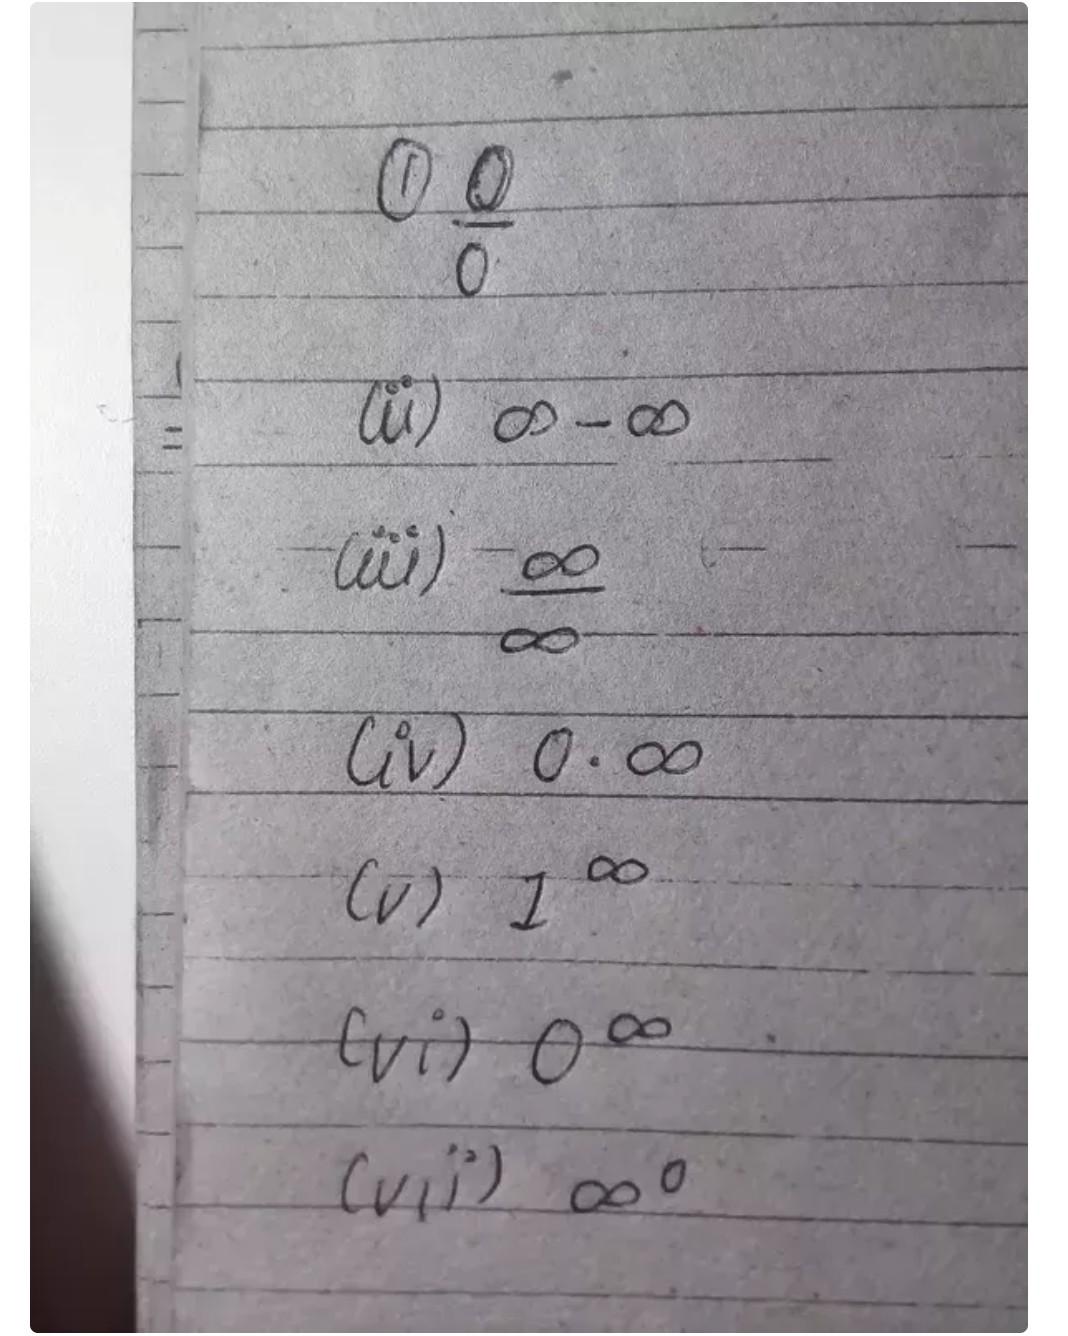 ① 0/0
(ii) ∞ - ∞
(iii) ∞/∞
(iv) 0 . ∞
(v) 1^∞
(vi) 0^∞
(vii) ∞^0